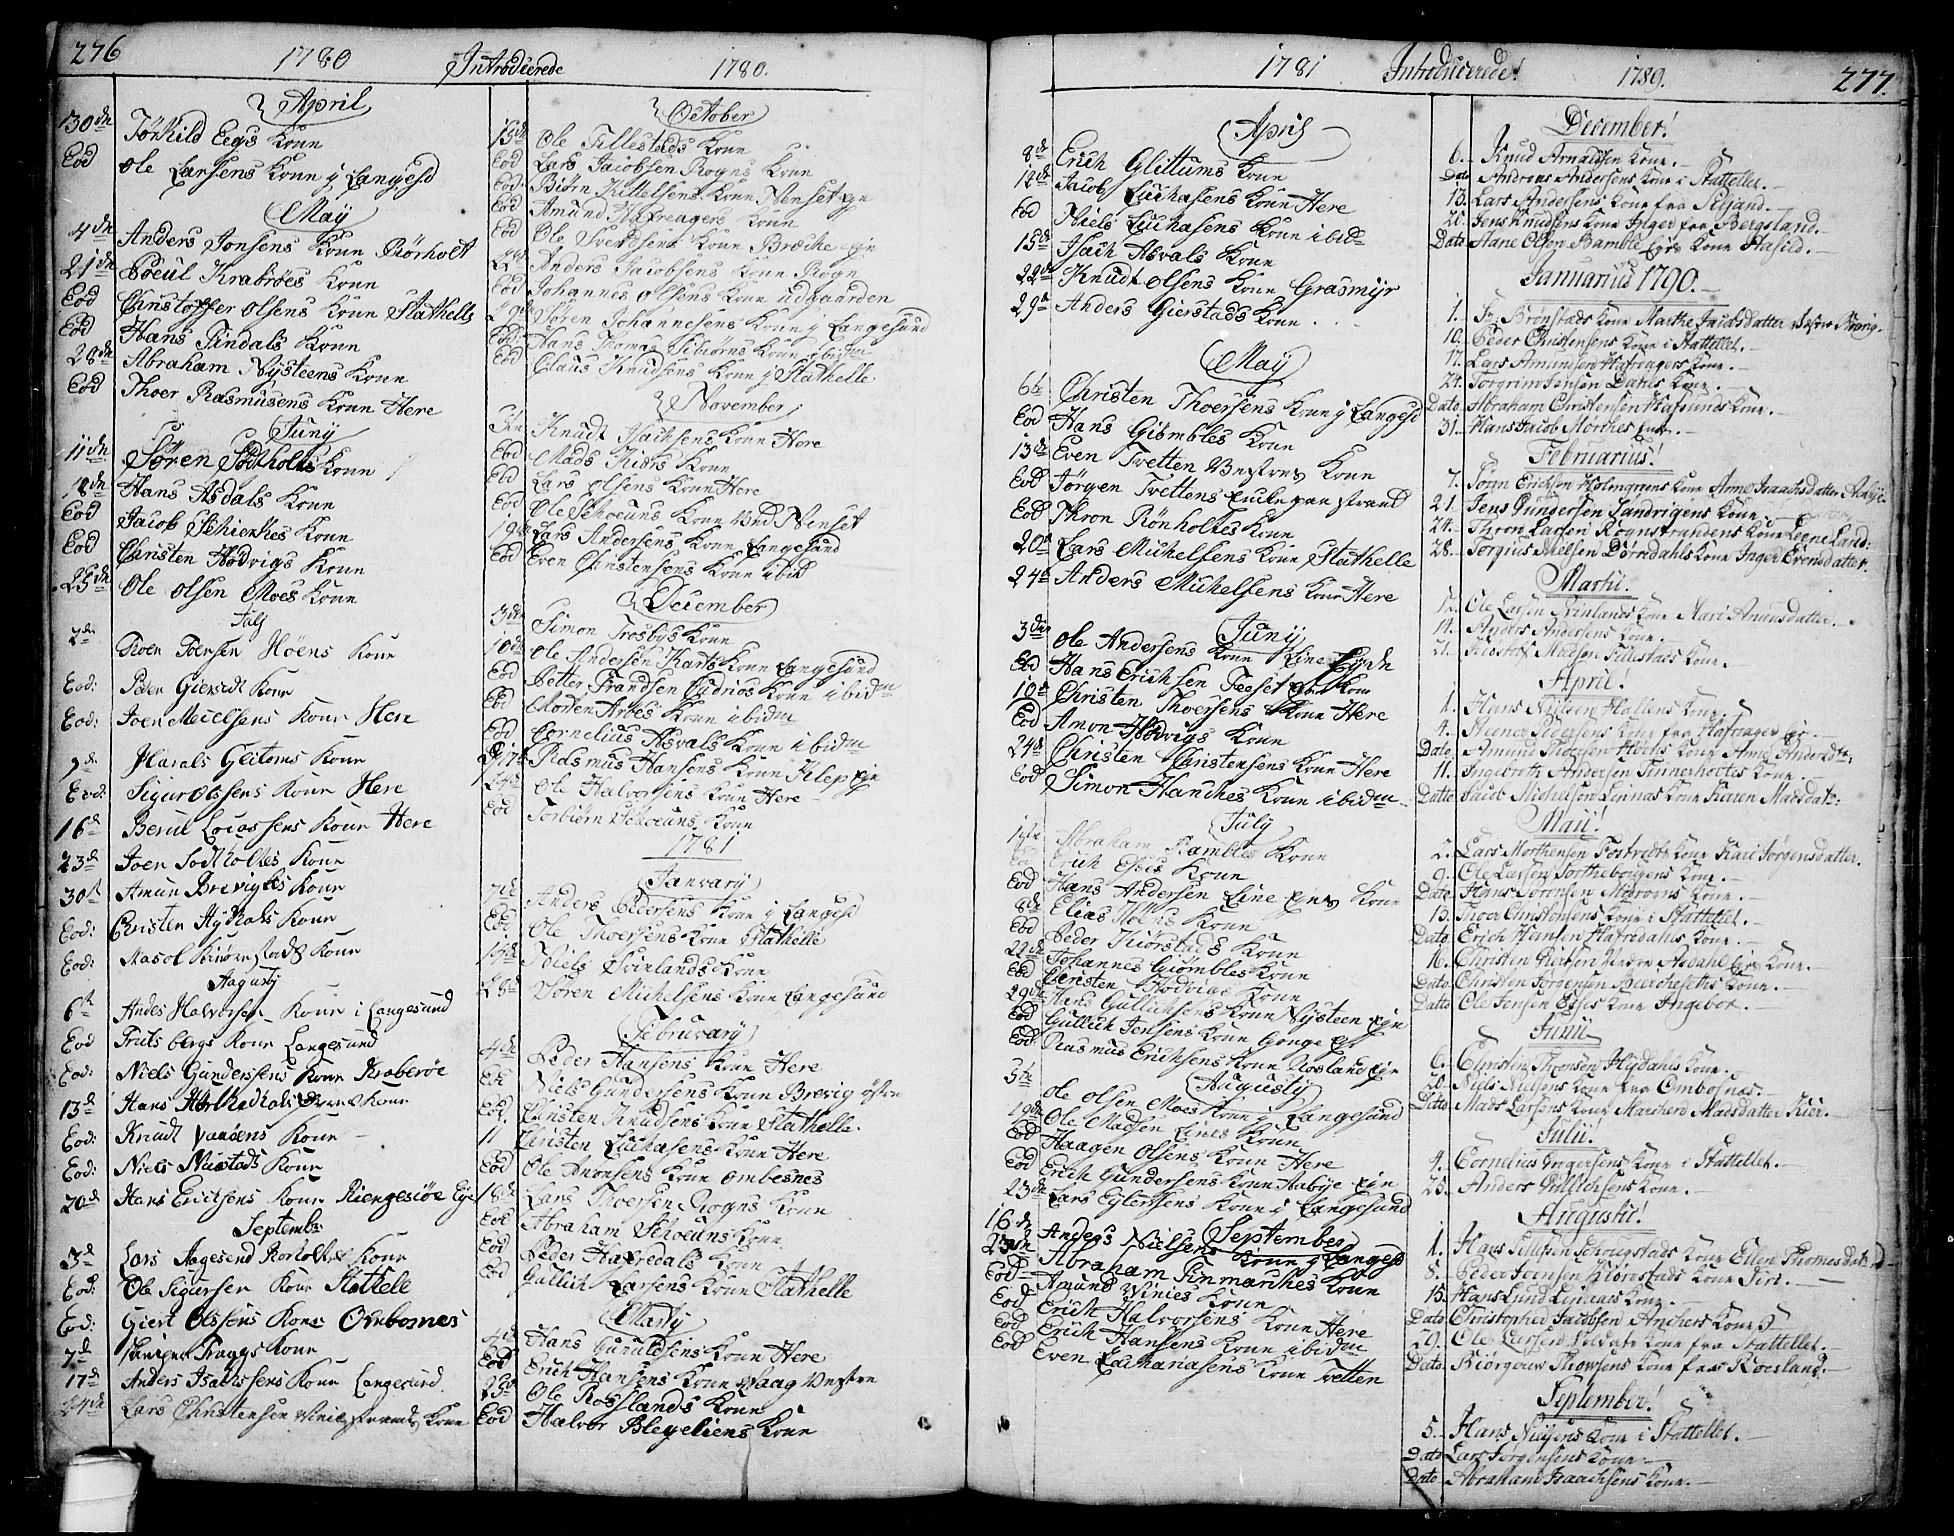 276
1780 Introducerede 1780.
April
30 dn Törkild Eegs Konn
Eod Ole Larsens Konn j Langesd
May
4 dn Anders Jonsens Konn Rörholt
21 dn Poeul Krabröes Konn
Eod Christopher Olsens Konn Stathelle
Eod Hans Tindals Konn
28 dn Abraham Nysteens Konn
Eod Thoer Rasmusens Konn Here
Juny
11 dn Sören Södtholts Konn
18 dn Hans Asdals Konn
Eod Jacob Schierkes Konn
Eod Christen Hödvigs Konn
25 dn Ole Olsen Moes Konn
July
2 dn Toersen Höens Konn
Eod: Peder Gierstedt Konn
Eod: Joen Meielsens Konn Here
9 d Harals Glitoms Konn
Eod: Sigur Olssens Konn Here
16 d Bertil Loucssens Konn Here
23 d Joen Sodtholtes Konn
30 d Amun Brevigtes Konn
Eod: Christen Konn
Eod: Konn
Augusty
6 t Andes Halvorsen Konn i Langesund
Eod Fruts bergs Konn Langesund
Eod: Niels Gunderssens Konn Kraberöe
13 d Hans Konn
Eod: Knudt Konn
Eod: Niels Nustads Konn
20 d Hans Ericksens Konn Riengesiöe Eje
Septembr
3 d Lars Aagesend Rorholt Konn
Eod: Ole Sigursen Konn Stattele
Eod: Giert Olssens Konn Ombornes
7 d Traggs Konn
17 d Anders Isachssens Konn Langesund
24 dn Lars Christensen Konn
October
15 dn Ole Tillestads Konn
Eod Lars Jacobsen Rogns Konn
Eod Biörn Kittelsens Konn Nenset Eje
Eod Amund Hafreagers Konn
Eod Ole Svendsens Konn Broche Eje
22 d Anders Jacobsens Konn Rogn
Eod Johannes Olsens Konn udgaarden
29 dn Sören Johannesens Konn j Langesund
Eod Hans Thomas Sibiörns Konn ibidm
Eod Claus Knudsens Konn j Stathelle
November
5 te Knudt Isachsens Konn Here
Eod Mads Kiærs Konn
Eod Lars Olsens Konn Here
Eod Ole Schoeuns Konn Nenset
19 dn Lars Andersens Konn Langesund
Eod Even Christensens Konn ibid
December
3 dn Simon Trosbys Konn
10 dn Ole Andersen Karts Konn Langesund
Eod Petter Frandsen Cudrios Konn ibidm
Eod Morden Aroes Konn ibidm
Eod Cornelius Asvals Konn ibidm
17 d Rasmus Hansens Konn Klep Eje
24 d Ole Halvorsens Konn Here
Eod Torbiörn Schoeuns Konn
1781
January
7 de Anders Pedersens Konn j Langesd
Eod Ole Thoersens Konn Stathelle
Niels Grinlands Konn
28 d Sören Michelsens Konn Langesund
February
4 de Peder Hansens Konn Here
Eod Niels Gundersens Konn Brevig östen
Eod Christen Knudsens Konn Stathelle.
11 Christen Luchasens Konn Here
Eod Ole Anonsens Konn Ombesnes
18 dn Lars Thoersen Rogns Konn
Eod Abraham Schoeuns Konn
Eod Peder Hafredals Konn
Eod Gullich Larsens Konn Stathelle
Marty
4 de Hans Gunuldsens Konn Here
Eod Erich Hansens Konn Waag Vesten
25 d Ole Rosslands Konn
Eod Halvor Blegeliens Konn
1781 Introducerede! 1789. 277.
April
8 de Erich Glittums Konn
12 de Jacob Luchasens Konn Here
Eod Niels Luchasens Konn ibidm
15 de Isach Asvals Konn
22 de Knudt Olsens Konn Grasmyr
29 d Anders Gierstads Konn
May
6 te Christen Thoersens Konn j Langesd
Eod Hans Giömbles Konn
13 de Even Tvetten Vestres Konn
Eod Jörgen Tvettens Enke paa strand
Eod Thron Rönholtes Konn
20 d Lars Michelsens Konn Stathelle
24 d Anders Michelsens Konn Here
Juny
3 dn Ole Andersens Konn Eine
Eod Hans Erichsen Feeset Ejes Konn
10 d Christen Thoersens Konn Here
Eod Amon Hödvigs Konn
24 d Christen Christensens Konn Here
Eod Simon Hanches Konn ibidm
July
1 te Abraham Rambles Konn
Eod Erich Eses Konn
Eod Hans Andersen Eine Ejes Konn
8 de Elias Höens Konn
Eod Peder Kiörstads Konn
22 de Johannes Giömbles Konn
Eod Christen Hodvigs Konn
29 de Hans Gullichsens Konn Nysteen Eje
Eod Gullich Jensens Konn Gonge Ej
Eod Rasmus Erichsens Konn Rosland Eje
Augusty
5 te Ole Olsen Moes Konn j Langesund
19 de Ole Madsen Eines Konn
Eod Haagen Olsens Konn Here
Eod Erich Gundersens Konn Aabye Eje
23 de Lars Eylertsens Konn j Langesund
September
16 d Anders Nielsens Konn j Langesd
23 d Abraham Finmarches Konn
Eod Amund Vinies Konn
Eod Erich Halvorsens Konn Here
Eod Erich Hansens Konn ibidm
Eod Even Zachariasens Konn Tvetten
December!
6. Knud Arnaldsen Kone.
Dato Andreas Andersens Kone i Stattellet.
13. Lars Andersens Kone fra Seljand.
21. Jens Knudsens Kone Inger fra Bergsland.
Dato Hane Olsen Bamble Ejes Kone Hasild.
Januarius 1790.
1. Fr. Brönstads Kone Marthe Jacobsdatter Vestre Brevig.
10. Peder Christensens Kone i Stattellet.
17. Lars Amundsen Hafragers Kone.
24. Torgrim Jensen Dahls Kone.
Dato Abraham Christensen Hafsunds Kone.
31. Hans Jacob Störches Kone.
Februarius!
7. Sörin Ericksen Holmgrens Kone Anne Isaachsdatter Aabye
21. Jens Gundersen Landrigens Kone.
24. Thron Larsen Rognstrandens Kone Leene Land:
28. Torgius Nielsen Dörrdahls Kone Inger Evensdatter.
Martii.
12. Ole Larsen Grinlands Kone Mari Amunsdatter.
14. Anders Andersens Kone.
21. Madsen Tillestads Kone.
April!
1. Hans Nielsen Hallens Kone.
4. Stener Pedersens Kone fra Hafrager Ej.
Dato Amund Toersen Höens Kone Anne Andersdtr.
11. Ingebreth Andersen Tinnerholtes Kone.
Datto Jacob Michelsen Linnæs Kone Karen Madsdatr:
Maii!
2. Lars Morthensen Fostvedts Kone Kari Jörgensdatter.
9. Ole Larsen Tortheborgens Kone.
Dato Hans Sörensen Mörvigs Kone.
13. Thoer Christensens Kone i Stattellet.
Dato Erich Hansen Hafredahls Kone.
16. Christen Nielsen Nedre Asdahl Ejes Kone.
Dato Christen Jörgensen Bierchesetts Kone.
Dato Ole Jensen Eses Kone Ingebor.
Junii
6. Christen Thronsen Flydahls Kone.
20. Niels Nielsens Kone fra Ombosnæs.
Ditto Mads Larsens Kone Marchen Madsdatter Kier.
Julii!
4. Cornelius Ingersens Kone i Stattellet.
25. Anders Gullichsens Kone.
Augusti!
1. Hans Tillefsen Schougstads Kone Ellen Thomesdatr.
8. Peder Jensen Kiörestads Kone Siri.
15. Hans Lund Linaaes Kone.
Dato Christopher Jacobsen Anchers Kone
29. Ole Larsens Soldats Kone fra Stattellet.
Dato Biörgeuv Thowsens Kone fra Roesland.
September!
5. Hans Nilsens Kone i Stattellet.
Dato Lars Jörgensens Kone
Dato Abraham Isaachsens Kone.